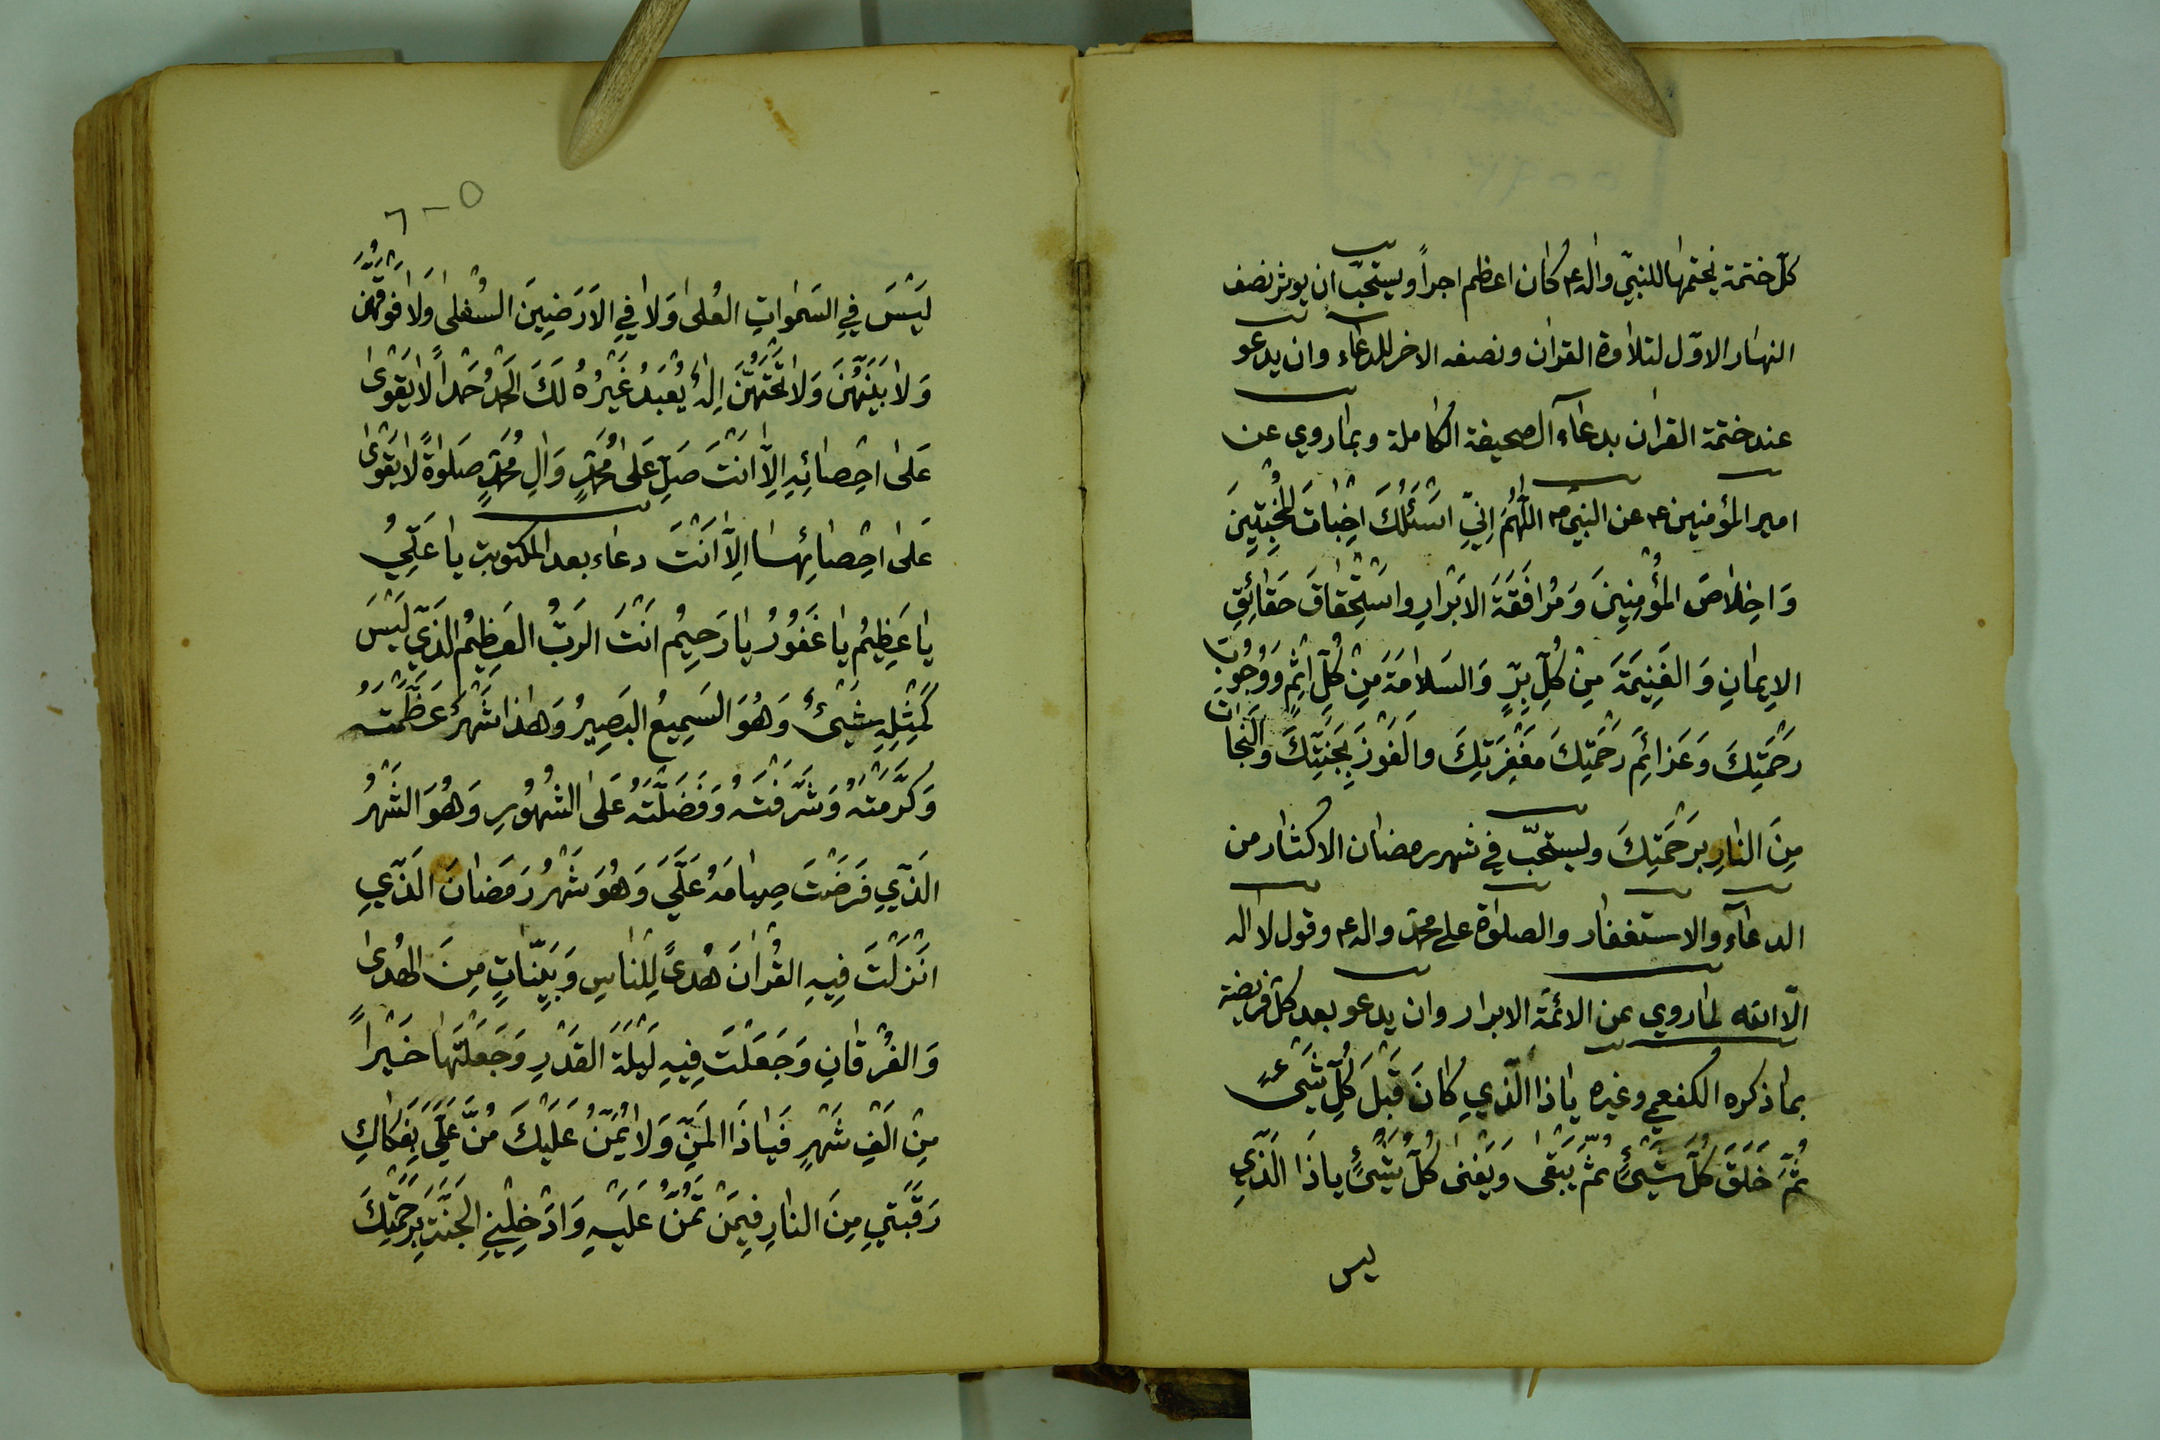 كلّ ختمة يختمها للنبيّ واله ع كان اعظم اجراً ويستحبّ ان يوثر نصف
النهار الاوّل لتلاوة القران ونصفه الاخر للدعاء وان يدعو
عند ختمة القران بدعآء الصحيفة الكاملة وبما روي عن
امير المؤمنين ع عن النبيّ ص اللّهُمَ اِنّيِ اسْئَلُكَ اخْباتَ المُخْبِتِينَ
وَاخِلاصَ المؤُمِنِينَ وَمُرافَقَةَ الابَرْارِ واسْتِحْقاقَ حَقائِقِ
الاِيمانِ وَالغَنِيمَةَ مِنْ كُلِّ بِرٍّ وَالسَلامَةَ مِنْ كُلِّ اثِمٍ وَوُجُوبَ
رَحْمَتِكَ وَعَزائَمِ رَحْمَتِكَ مَغْفِرَتِكَ والفَوْزَ بِجَنتِّكَ وَالنِجاتَ
مِنَ النارِ بِرَحْمَتِكَ ويستحبّ في شهر رمضان الاكثار من
الدعآء والاستغفار والصلوٰة على محمّد واله ع وقول لا اله
الّا اللّه لما روي عن الائمّة الابرار وان يدعو بعد كلّ فريضة
بما ذكره الكفعمي وغيره يا ذا الّذيِ كانَ قَبْلَ كُلِّ شَيْئ
ثُمَّ خَلَقَ كُلّ شَيْئٍ ثُمّ يَبْقى وَيَفْنى كُلُّ شَيْئٍ يا ذَا الَّذيِ
ليس
لَيْسَ فيِ السَمٰواتِ العُلىٰ وَلا فيِ الاَرَضِينَ السُفْلىٰ وَلا فَوقَهُنَّ
وَلا بَيْنَهُنَ وَلا تَحْتَهُنَّ اِلهٌ يُعْبَدُ غَيْرُهُ لَكَ الحَمْدُ حَمْداً لا يَقْوىٰ
عَلىٰ احِصائِهِ الِّا انَتَ صَلِّ عَلىٰ مُحَمّدٍ وَالِ مُحَمّدٍ صَلوٰةً لا يَقْوىٰ
عَلىٰ احِصائِها الِّا انَتَْ دعاء بعد المكتوبة يا عَلِّيُ
يا عَظِيمُ يا غَفُورُ يا رَحِيمُ انَتَْ الرَبُّ العَظِيمُ الّذيِ لَيْسَ
كَمِثْلِهِ شَيْئٌ وَهُوَ السَمِيعُ البَصِيرُ وَهٰذا شَهْرٌ عَظَّمْتَهُ
وَكَرَّمْتَهُ وَشَرَّفْتَهُ وَفَضَلّتَهُ عَلىٰ الشُهُورِ وَهُوَ الشَهْرُ
الَذّيِ فَرَضْتَ صِيامَهُ عَلَيَّ وَهُوَ شَهْرُ رَمَضانَ الَذّيِ
انَزْلَتَْ فِيهِ القُرانَ هُدىً لِلناسِ وَبَيِّناتٍ مِنَ الهُدىٰ
وَالفُرْقانِ وَجَعَلْتَ فِيهِ لَيْلَةَ القَدْرِ وَجَعَلْتَها خَيْراً
مِنْ الَفِْ شَهْرٍ فَيا ذَا المَنِّ وَلا يُمَنُّ عَلَيْكَ مُنَّ عَلَيَّ بِفَكاكِ
رَقَبَتيِ مِنَ النارِ فِيمَنْ تَمُنُّ عَلَيْهِ وَادَْخِلْنيِ الجَنَّةَ بِرَحْمَتِكَ